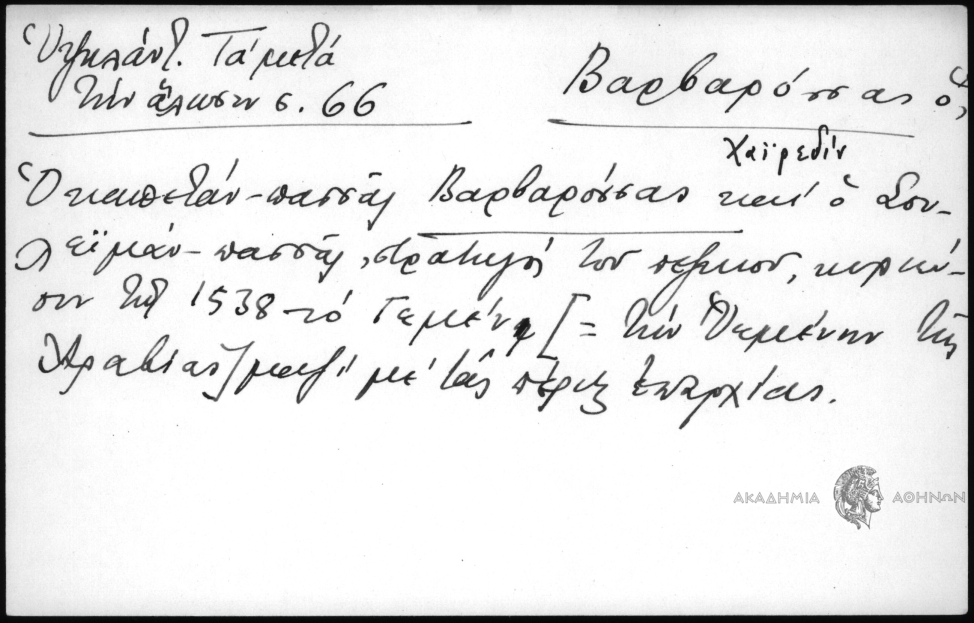 Ὑψηλάντ. Τά μετά
τήν ἅλωσιν σ. 66
Βαρβαρόσσας ὁ,
Χαϊρεδίν
Ὁ καπετάν-πασσᾶς Βαρβαρόσσας καί ὁ Σου-
λεϊμάν-πασσᾶς, στρατηγός τοῦ πεζικοῦ, κυριεύ-
ουν τῷ 1538 τό Γεμέν [= τήν Ὑεμένην τῆς
Ἀραβίας] μαζί μέ τάς πέριξ ἐπαρχίας.
ΑΚΑΔΗΜΙΑ ΑΘΗΝΩΝ